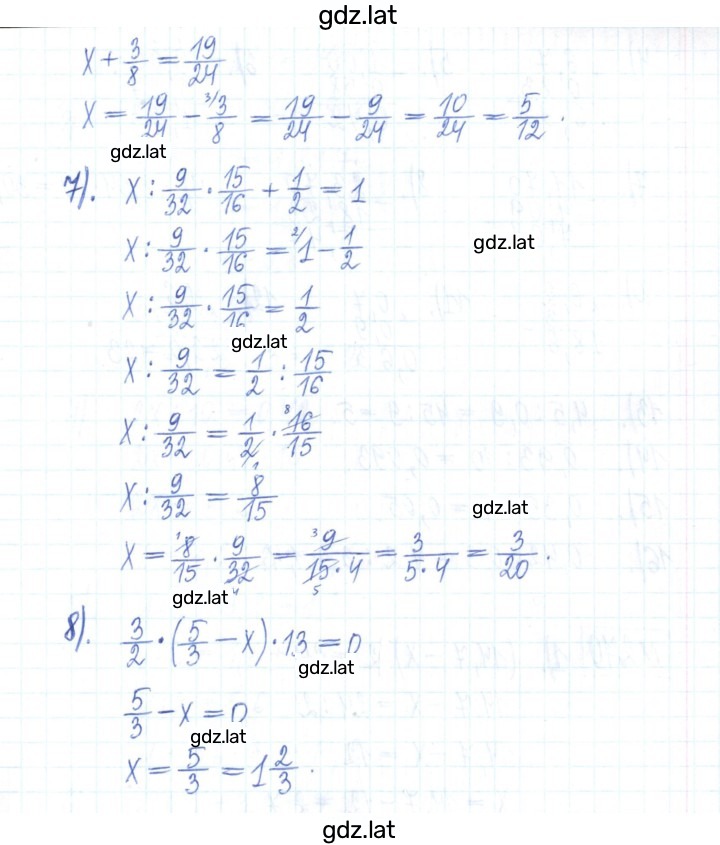 gdz.lat
x + 3/8 = 19/24
x = 19/24 - ³⁾3/8 = 19/24 - 9/24 = 10/24 = 5/12.
gdz.lat
7). x : 9/32 · 15/16 + 1/2 = 1
x : 9/32 · 15/16 = ²⁾1 - 1/2
gdz.lat
x : 9/32 · 15/16 = 1/2
gdz.lat
x : 9/32 = 1/2 : 15/16
x : 9/32 = 1/2 · 16/15
x : 9/32 = 8/15
gdz.lat
x = 8/15 · 9/32 = 9/(15·4) = 3/(5·4) = 3/20.
gdz.lat
8). 3/2 · (5/3 - x) · 13 = 0
gdz.lat
5/3 - x = 0
gdz.lat
x = 5/3 = 1 2/3.
gdz.lat